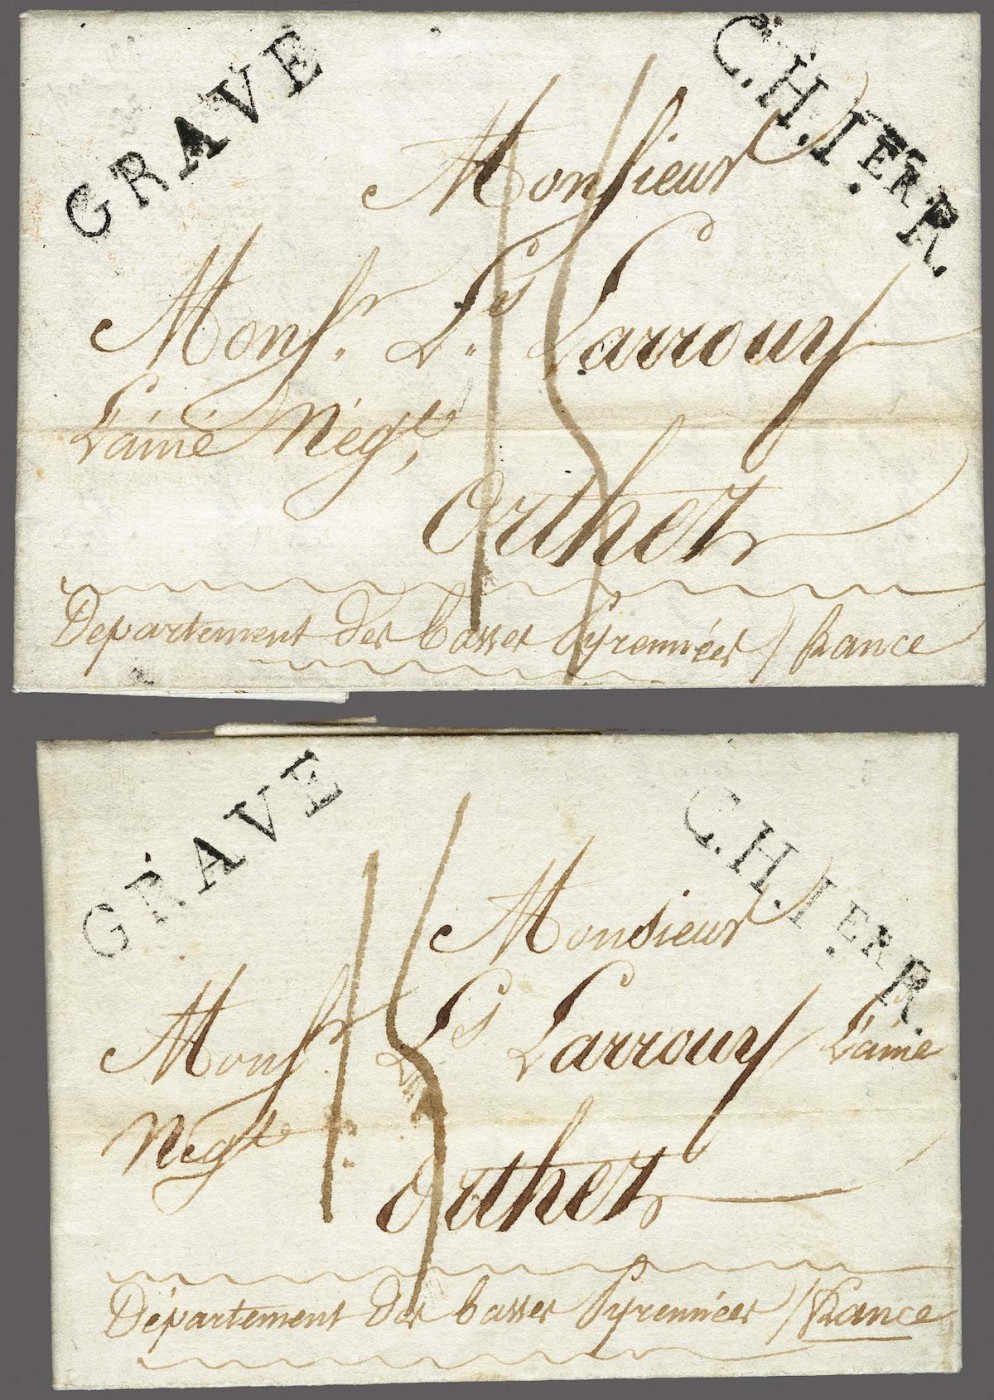 GRAVE
C.H.Ier.R.
Monsieur
Monsr. Ls. Larrouy
L'ainé Négt,
Orthez
Departement des basses Pyrennées / france
15
GRAVE
C.H.Ier.R.
Monsieur
Monsr. Ls Larrouy L'ainé
Negt
Orthez
Département des basses Pyrennées / france
15